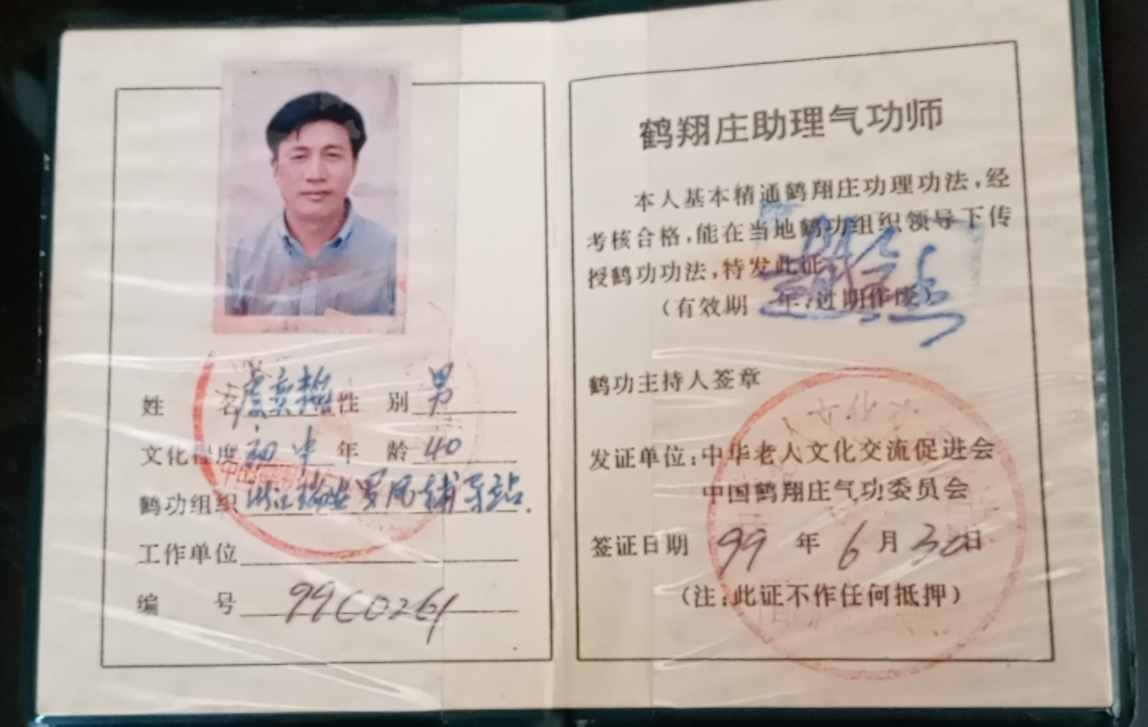 姓 名 性 别 男
文化程度 初中 年 龄 40
鹤功组织 浙江瑞安罗凤辅导站.
工作单位
编 号 99C0261
鹤翔庄助理气功师
本人基本精通鹤翔庄功理功法,经
考核合格,能在当地鹤功组织领导下传
授鹤功功法,特发此证
(有效期 年,过期作废)
鹤功主持人签章
发证单位:中华老人文化交流促进会
中国鹤翔庄气功委员会
签证日期 99 年 6 月 30 日
(注:此证不作任何抵押)